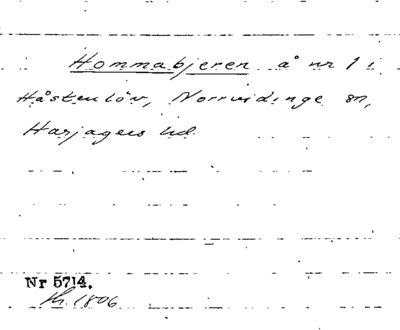 Hommabjeren å nr 1 i
Håstenlöv, Norrvidinge sn,
Harjagers hd.
Nr 5714.
1806